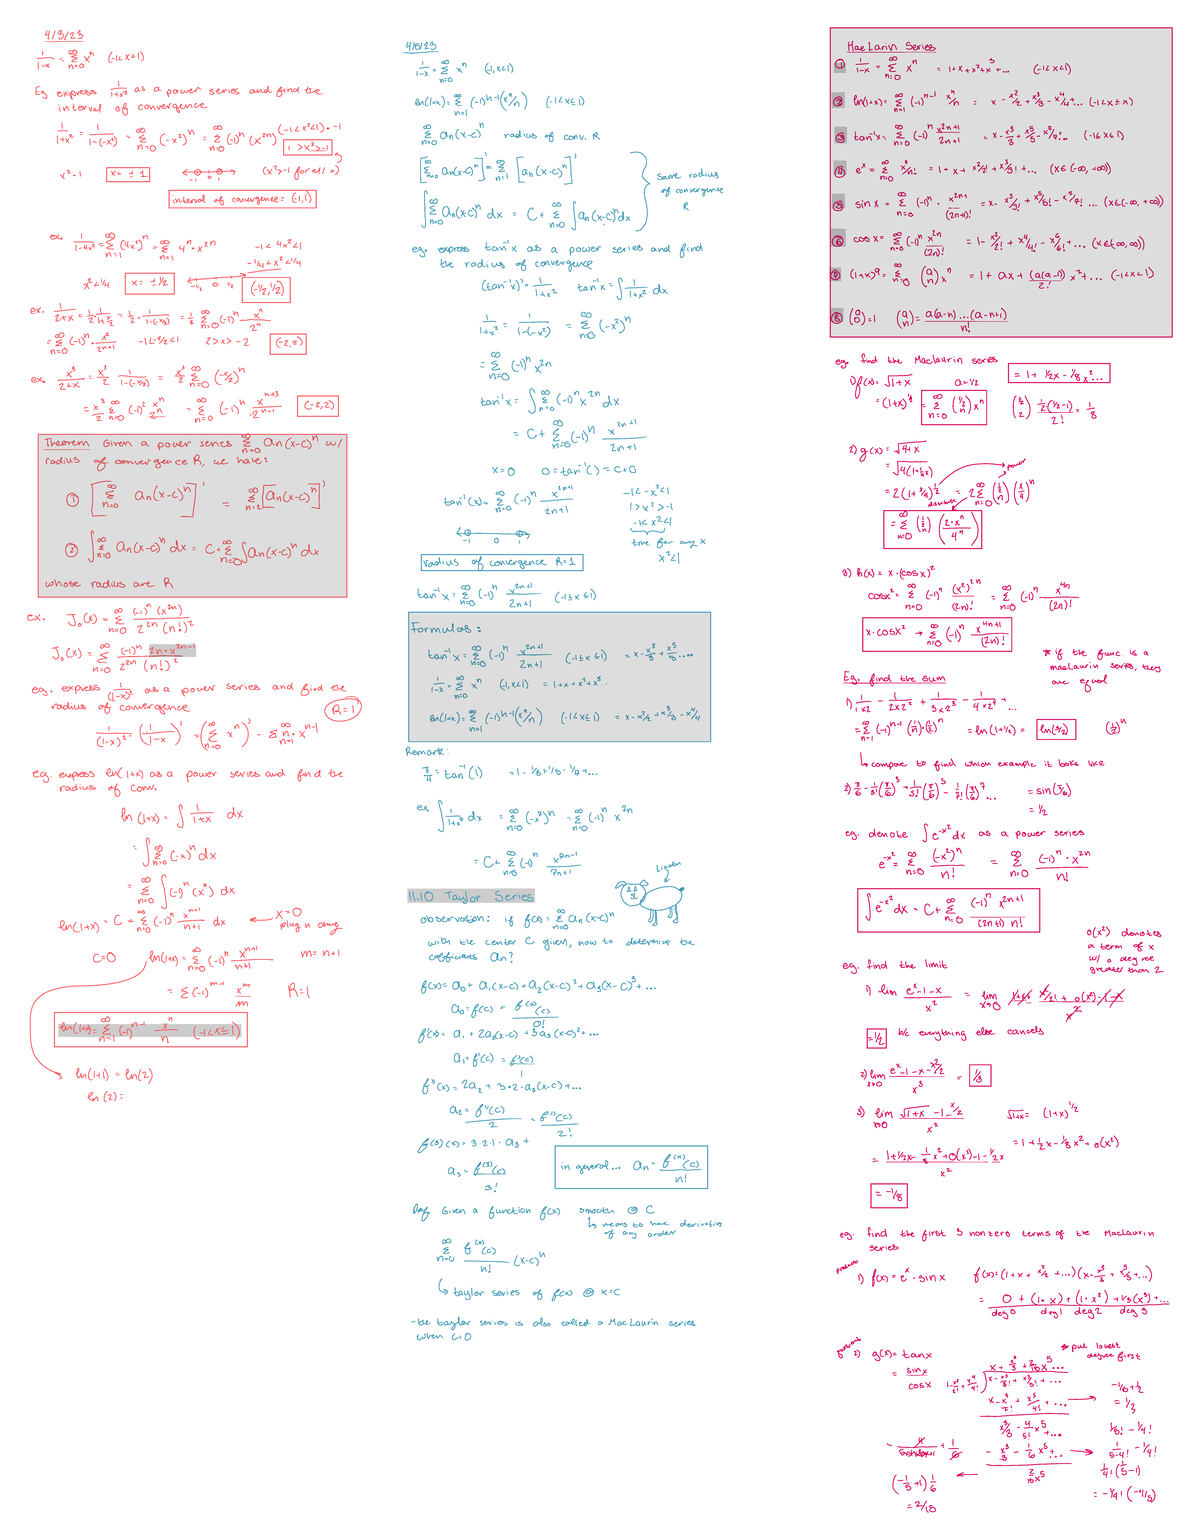 4/3/23
1/(1-x) = ∞Σn=0 xⁿ (-1<x<1)
Eg express 1/(1+x²) as a power series and find the
interval of convergence
1/(1+x²) = 1/(1-(-x²)) = ∞Σn=0 (-x²)ⁿ = ∞Σn=0 (-1)ⁿ (x²ⁿ) (-1<-x²<1)·-1
1>x²>-1
x²<1 x=±1 -1 0 1 (x²>-1 for all x)
interval of convergence = (-1,1)
ex. 1/(1-4x²) = ∞Σn=1 (4x²)ⁿ = ∞Σn=1 4ⁿ·x²ⁿ -1<4x²<1
-1/4<x²<1/4
x²<1/4 x=±1/2 -1/2 0 1/2 (-1/2,1/2)
ex. 1/(2+x) = 1/2·1/(1+x/2) = 1/2·1/(1-(-x/2)) = 1/2 ∞Σn=0 (-1)ⁿ xⁿ/2ⁿ
= ∞Σn=0 (-1)ⁿ·xⁿ/2ⁿ⁺¹ -1<-x/2<1 2>x>-2 (-2,2)
ex. x³/(2+x) = x³/2 1/(1-(-x/2)) = x³/2 ∞Σn=0 (-x/2)ⁿ
= x³/2 ∞Σn=0 (-1)ⁿ xⁿ/2ⁿ = ∞Σn=0 (-1)ⁿ xⁿ⁺³/2ⁿ⁺¹ (-2,2)
Theorem Given a power series ∞Σn=0 an(x-c)ⁿ w/
radius of convergence R, we have:
① [∞Σn=0 an(x-c)ⁿ]' = ∞Σn=1 [an(x-c)ⁿ]'
② ∫∞Σn=0 an(x-c)ⁿ dx = C+∞Σn=0 ∫an(x-c)ⁿ dx
whose radius are R
ex. J₀(x) = ∞Σn=0 (-1)ⁿ(x²ⁿ)/(2²ⁿ(n!)²)
J₀(x) = ∞Σn=0 (-1)ⁿ 2n·x²ⁿ⁻¹/(2²ⁿ(n!)²)
eg. express 1/(1-x)² as a power series and find the
radius of convergence R=1
1/(1-x)² = (1/(1-x))' = (∞Σn=0 xⁿ)' = ∞Σn=1 n·xⁿ⁻¹
eg. express ln(1+x) as a power series and find the
radius of conv.
ln(1+x) = ∫ 1/(1+x) dx
= ∫∞Σn=0 (-x)ⁿ dx
= ∞Σn=0 ∫(-1)ⁿ(xⁿ) dx
ln(1+x) = C + ∞Σn=0 (-1)ⁿ xⁿ⁺¹/(n+1) dx ← x=0
plug n chug
C=0 ln(1+x) = ∞Σn=0 (-1)ⁿ xⁿ⁺¹/(n+1) m=n+1
= Σ(-1)ᵐ⁻¹ xᵐ/m R=1
ln(1+x) = ∞Σn=1 (-1)ⁿ⁻¹ xⁿ/n (-1<x≤1)
ln(1+1) = ln(2)
ln(2) =
4/5/23
1/(1-x) = ∞Σn=0 xⁿ (-1,x<1)
ln(1+x) = ∞Σn=1 (-1)ⁿ⁻¹(xⁿ/n) (-1<x≤1)
∞Σn=0 an(x-c)ⁿ radius of conv. R
[∞Σn=0 an(x-c)ⁿ]' = ∞Σn=1 [an(x-c)ⁿ]'
∫∞Σn=0 an(x-c)ⁿ dx = C+ ∞Σn=0 ∫an(x-c)ⁿdx
same radius
of convergence
R
eg. express tan⁻¹x as a power series and find
the radius of convergence
(tan⁻¹x)' = 1/(1+x²) tan⁻¹x = ∫1/(1+x²) dx
1/(1+x²) = 1/(1-(-x²)) = ∞Σn=0 (-x²)ⁿ
= ∞Σn=0 (-1)ⁿ x²ⁿ
tan⁻¹x = ∫∞Σn=0 (-1)ⁿ x²ⁿ dx
= C+ ∞Σn=0 (-1)ⁿ x²ⁿ⁺¹/(2n+1)
x=0 0=tan⁻¹()=C+0
tan⁻¹(x) = ∞Σn=0 (-1)ⁿ x²ⁿ⁺¹/(2n+1) -1<-x²<1
1>x²>-1
-1<x²<1
-1 0 1 true for any x
x²<1
radius of convergence R=1
tan⁻¹x = ∞Σn=0 (-1)ⁿ x²ⁿ⁺¹/(2n+1) (-1≤x≤1)
Formulas:
tan⁻¹x = ∞Σn=0 (-1)ⁿ x²ⁿ⁺¹/(2n+1) (-1≤x≤1) = x-x³/3+x⁵/5....
1/(1-x) = ∞Σn=0 xⁿ (-1,x<1) = 1+x+x²+x³...
ln(1+x) = ∞Σn=1 (-1)ⁿ⁻¹(xⁿ/n) (-1<x≤1) = x-x²/2+x³/3-x⁴/4
Remark:
π/4 = tan⁻¹(1) =1-1/3+1/5-1/7+...
ex ∫1/(1+x²) dx = ∞Σn=0 (-x²)ⁿ = ∞Σn=0 (-1)ⁿ x²ⁿ
= C+ ∞Σn=0 (-1)ⁿ x²ⁿ⁺¹/(2n+1)
Lincoln
11.10 Taylor Series
observation: if f(x) = ∞Σn=0 an(x-c)ⁿ
with the center C given, how to determine the
coefficients an?
f(x) = a₀+a₁(x-c)+a₂(x-c)²+a₃(x-c)³+...
a₀=f(c) = f⁽⁰⁾(c)/0!
f'(x) = a₁+2a₂(x-c)+3a₃(x-c)²+...
a₁=f'(c) = f'(c)/1
f''(x) = 2a₂+3·2·a₃(x-c)+...
a₂ = f''(c)/2 = f''(c)/2!
f⁽³⁾(x) = 3·2·1·a₃+
a₃ = f⁽³⁾(c)/3!
in general... an = f⁽ⁿ⁾(c)/n!
Def Given a function f(x) smooth @ C
↳ means to have derivatives
of any order
∞Σn=0 f⁽ⁿ⁾(c)/n! (x-c)ⁿ
↳ taylor series of f(x) @ x=c
-the taylor series is also called a MacLaurin series
when c=0
MacLarin Series
① 1/(1-x) = ∞Σn=0 xⁿ = 1+x+x²+x³+... (-1<x<1)
② ln(1+x) = ∞Σn=1 (-1)ⁿ⁻¹ xⁿ/n = x-x²/2+x³/3-x⁴/4+... (-1<x≤x)
③ tan⁻¹x = ∞Σn=0 (-1)ⁿ x²ⁿ⁺¹/(2n+1) = x-x³/3+x⁵/5-x⁷/7... (-1≤x≤1)
④ eˣ = ∞Σn=0 xⁿ/n! = 1+x+x²/2!+x³/3!+... (x∈(-∞,+∞))
⑤ sin x = ∞Σn=0 (-1)ⁿ· x²ⁿ⁺¹/(2n+1)! = x-x³/3!+x⁵/5!-x⁷/7!... (x∈(-∞,+∞))
⑥ cos x = ∞Σn=0 (-1)ⁿ x²ⁿ/(2n)! = 1-x²/2!+x⁴/4!-x⁶/6!+... (x∈(-∞,∞))
⑦ (1+x)ᵃ = ∞Σn=0 (a n)xⁿ = 1+ax+(a(a-1))/2! x²+... (-1<x<1)
⑧ (a 0)=1 (a n) = a(a-n)...(a-n+1)/n!
eg. find the Maclaurin series
1) f(x) = √(1+x) a=1/2 = 1+1/2x-1/8x²...
=(1+x)^½ = ∞Σn=0 (½ n)xⁿ (½ 2) ½(½-1)/2! = 1/8
2) g(x) = √(4+x)
= √(4(1+¼x)) power
= 2(1+x/4)^½ = 2∞Σn=0 (½ n)(x/4)ⁿ
distribute
= ∞Σn=0 (½ n)(2·xⁿ/4ⁿ)
3) h(x) = x·(cosx)²
cosx² = ∞Σn=0 (-1)ⁿ (x²)²ⁿ/(2n)! = ∞Σn=0 (-1)ⁿ x⁴ⁿ/(2n)!
x·cosx² → ∞Σn=0 (-1)ⁿ x⁴ⁿ⁺¹/(2n)!
* if the func. is a
maclaurin series, they
are equal
Eg. find the sum
1) 1/(1×2) - 1/(2×2²) + 1/(3×2³) - 1/(4×2⁴) +...
= ∞Σn=1 (-1)ⁿ⁻¹(1/n)·(½)ⁿ = ln(1+1/2) = ln(3/2) (½)ⁿ
↳ compare to find which example it looks like
2) π/6-1/3!(π/6)³+1/5!(π/6)⁵-1/7!(π/6)⁷... = sin(π/6)
= 1/2
eg. denote ∫e^-x²dx as a power series
e^-x² = ∞Σn=0 (-x²)ⁿ/n! = ∞Σn=0 (-1)ⁿ·x²ⁿ/n!
∫e^-x²dx = C+ ∞Σn=0 (-1)ⁿ x²ⁿ⁺¹/((2n+1)n!)
o(x²) denotes
a term of x
w/ a degree
greater than 2
eg. find the limit
1) lim (eˣ-1-x)/x² = lim x→0 (1+x+x²/2!+o(x²)-1-x)/x²
=1/2 b/c everything else cancels
2) lim x→0 (eˣ-1-x-x²/2)/x³ = 1/3
3) lim x→0 (√(1+x)-1-x/2)/x² √(1+x) = (1+x)^1/2
= 1+½x-1/8x²+o(x²)
= (1+1/2x-1/8x²+o(x²)-1-1/2x)/x²
= -1/8
eg. find the first 3 nonzero terms of the Maclaurin
series
products
1) f(x) = eˣ·sinx f(x) = (1+x+x²/2+...)(x-x³/3+x⁵/5+...)
= 0+(1·x)+(1·x²)+1/3(x³)+...
deg0 deg1 deg2 deg3
2) g(x) = tanx * put lowest
degree first
= sinx/cosx x+x³/3+2/15x⁵...
1-x²/2!+x⁴/4! ) x-x³/3!+x⁵/5!+...
x-x³/2!+x⁵/4!+... → -1/6+1/2
= 1/3
x³/3-4/5!x⁵+... 1/5!-1/4!
-x³/3-1/6x⁵+... → 1/(5·4!)-1/4!
2/15x⁵ 1/4!(1/5-1)
(-1/5+1)1/6 = -1/4!(-4/5)
=2/15